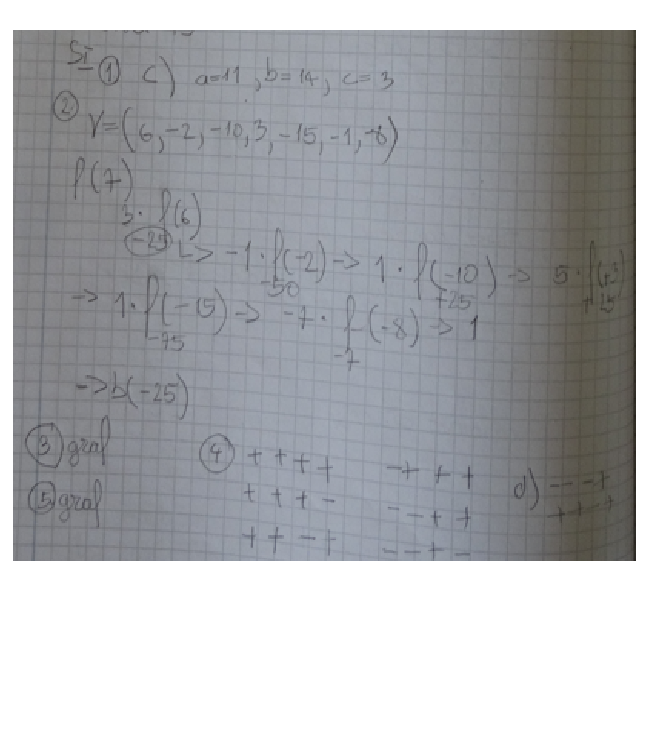 SI ① c) a=11, b=14, c=3
② V=(6,-2,-10,3,-15,-1,-8)
f(7)
3· f(6)
-25 ↳ -1·f(-2) -> 1·f(-10) -> 5·f(3)
-50 +25
-> 1·f(-15) -> -7·f(-8) -> 1
-75 -7
-> b(-25)
③ graf ④ + + + + - + + + d) - - - +
⑤ graf + + + - - - + +
+ + - + - - + -